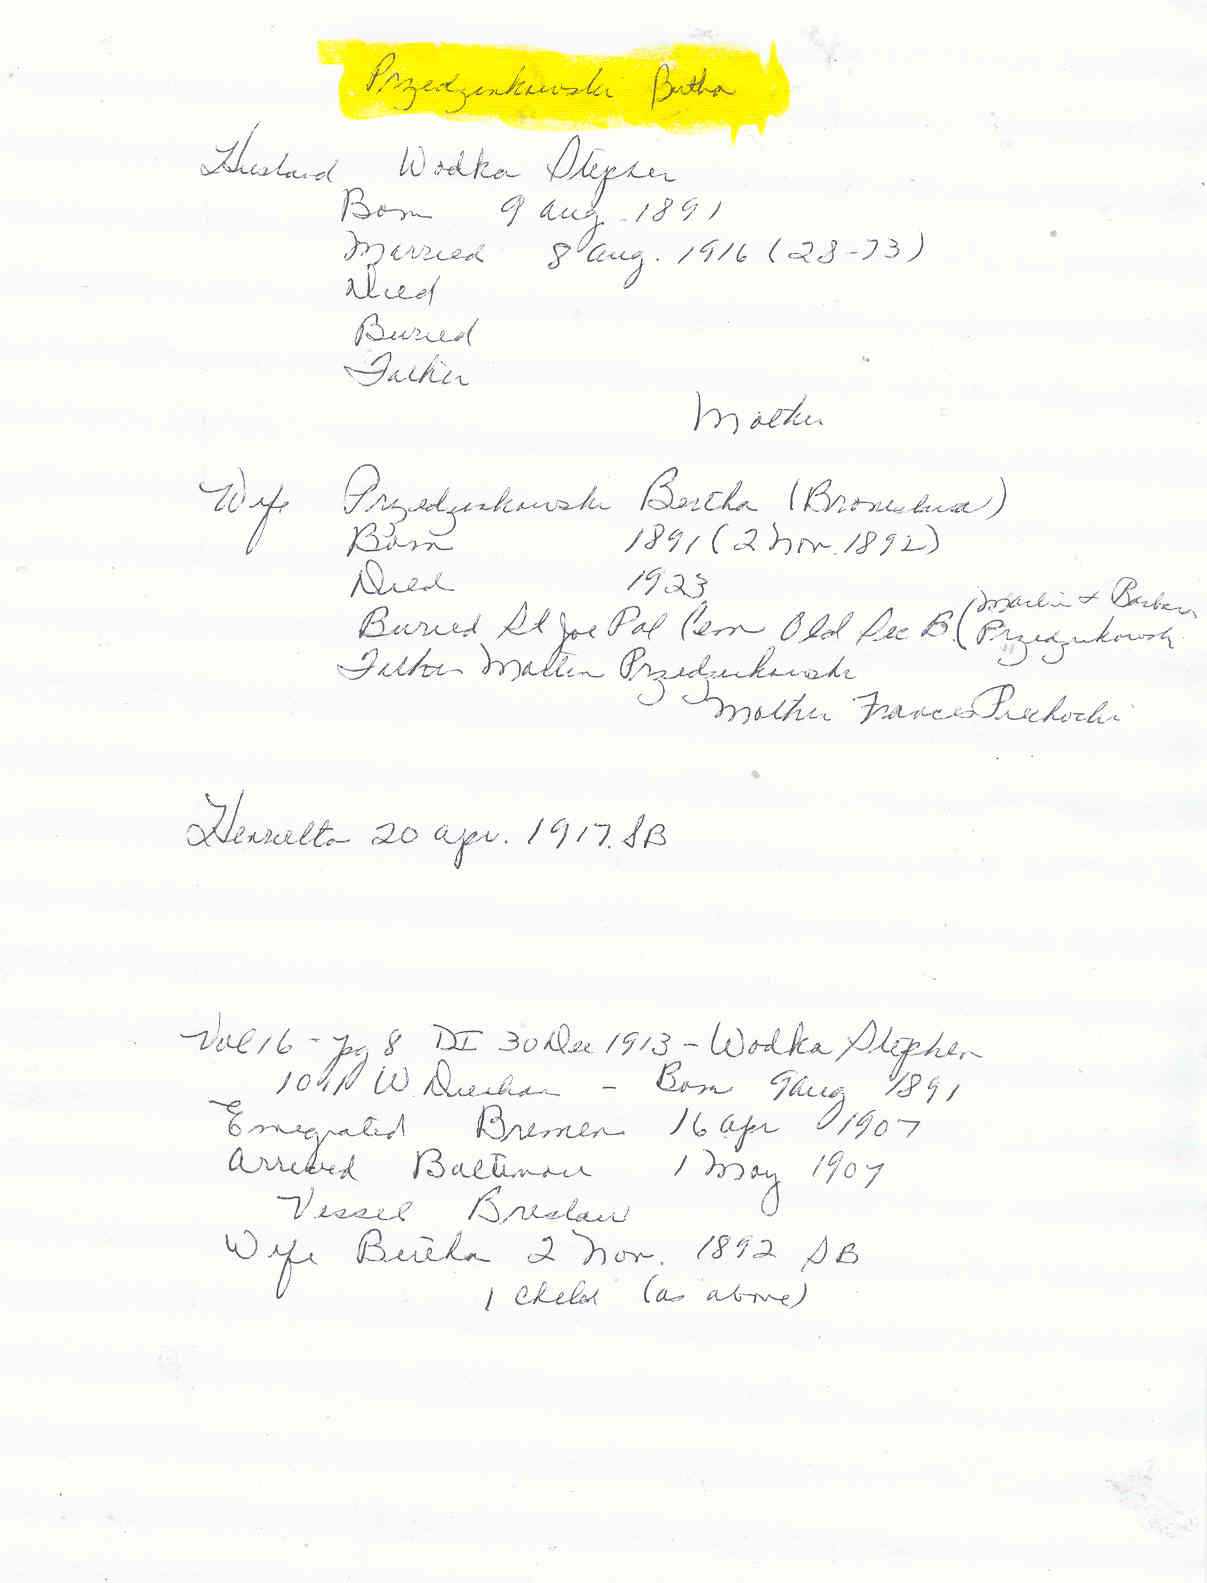 Przedzinkowski Bertha
Husband Wodka Stephen
Born 9 Aug. 1891
Married 8 Aug. 1916 (28-73)
Died
Buried
Father
Mother
Wife Przedzinkowski Bertha (Bronislawa)
Born 1891 (2 Nov. 1892)
Died 1923
Buried St Joe Pol Cem Old Sec B. (Martin + Barbara
Przedzinkowski
Father Martin Przedzinkowski
Mother Frances Piechocki
Henrietta 20 Apr. 1917. SB
Vol 16 - pg 8 DI 30 Dec 1913 - Wodka Stephen
W. - Born 9 Aug 1891
Emegrated Bremen 16 Apr 1907
Arrived Baltimore 1 May 1907
Vessel Breslau
Wife Bertha 2 Nov. 1892 SB
1 Child (as above)